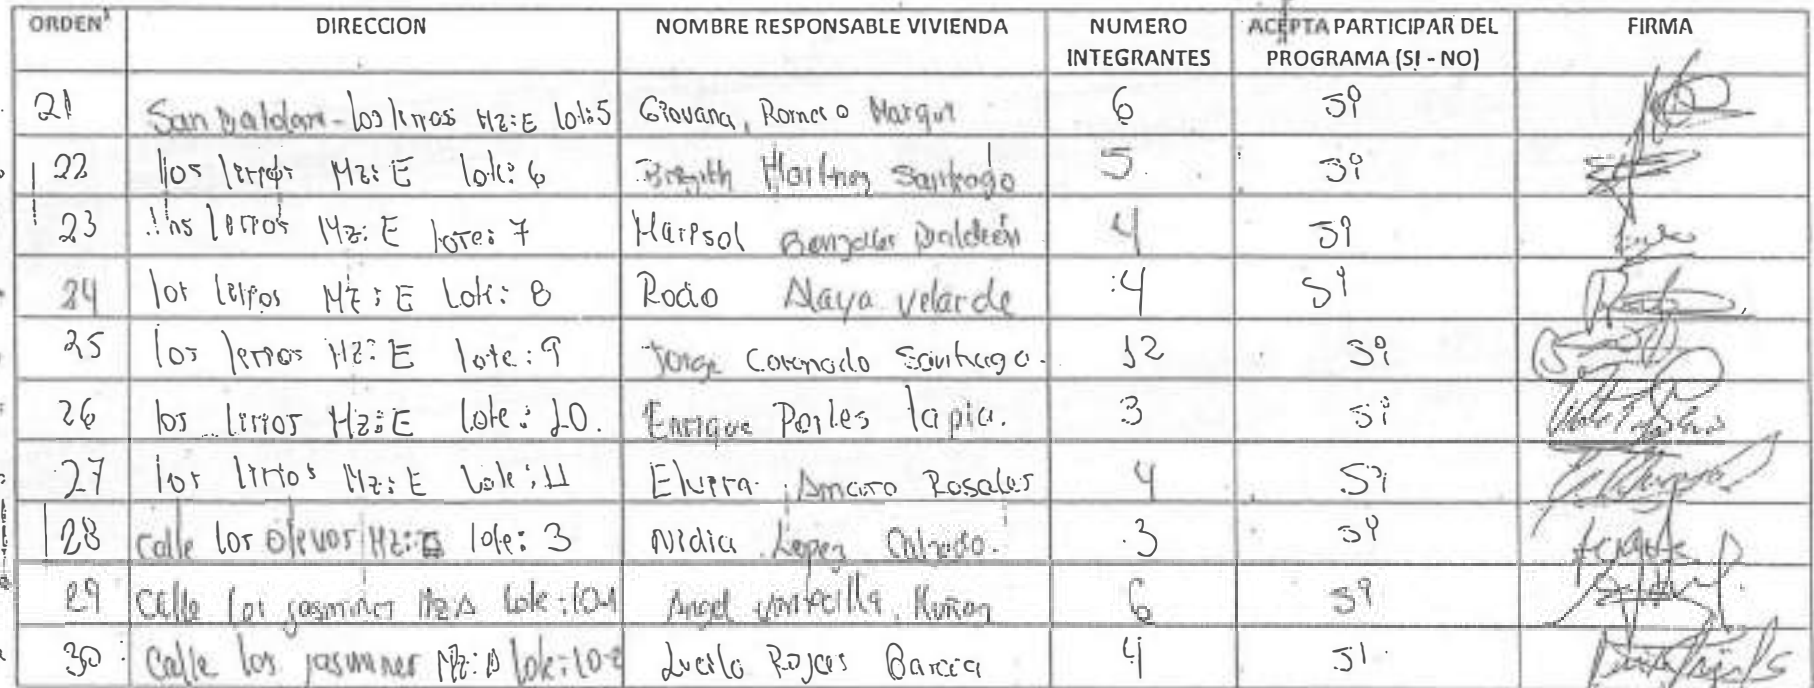 ORDEN DIRECCION NOMBRE RESPONSABLE VIVIENDA NUMERO INTEGRANTES ACEPTA PARTICIPAR DEL PROGRAMA (SI - NO) FIRMA
21 San - los lirios Mz: E lote: 5 Giovana, Romero 6 Si
22 los lirios Mz: E lote: 6 Santiago 5 Si
23 los lirios Mz: E lote: 7 Marisol 4 Si
24 los lirios Mz: E Lote: 8 Rocio Alaya velarde 4 Si
25 los lirios Mz: E lote: 9 Jorge Coronado Santiago. 12 Si
26 los lirios Mz: E lote: 10. Enrique tapia. 3 Si
27 los lirios Mz: E Lote: 11 Elvira Amaro Rosales 4 Si
28 calle los olivos Mz: lote: 3 Nidia Lopez 3 Si
29 calle los jasmines Mz A lote: 10-1 Angel 6 Si
30 Calle los jasmines Mz: A lote: 10-2 Lucila Rojas Garcia 4 SI